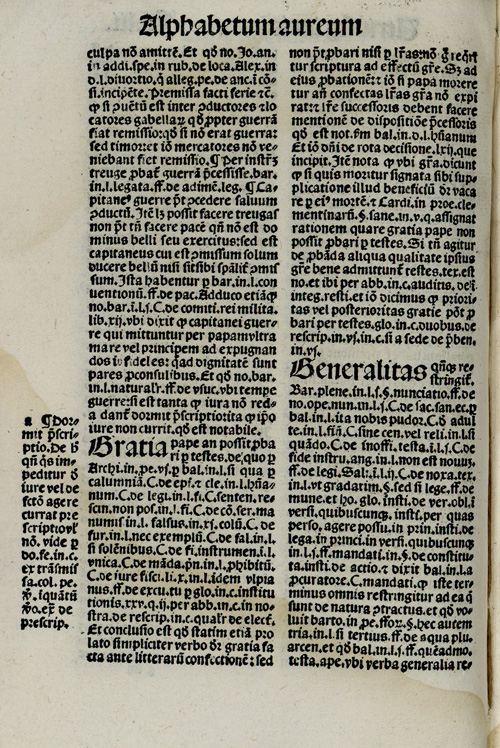 Alphabetum aureum
culpa nō amittēt. Et qđ no. Jo. an.
in addi. spe. in rub. de loca. Alex. in
d. l. diuortio. q̄ alleg. pe. de anc. ī cō-
si. incipēte. Premissa facti serie
catores gabellarum ꝙ ꝓpter guerrā
fiat remissio: qđ si nō erat guerra:
sed timor: et iō mercatores nō ve-
niebant fiet remissio. ¶ Per instr̄z
treuge ꝓbat guerrā p̄cessisse. bar.
in. l. legata. ff. de adimē. leg. ¶ Ca-
pitane' guerre p̄t ꝓcedere saluum
ꝓductū. Itē lz possit facere treugas
non p̄t tn̄ facere pacē qn̄ nō est do
minus belli seu exercitus: sed est
capitaneus cui est ꝓmissum solum
ducere bellū nisi sit sibi sp̄alit ꝓmis
sum. Ista habentur ꝑ bar. in. l. con
uentionū. ff. de pac. Adduco etiā ꝙ
no. bar. ī. l. s. C. de comiti. rei milita.
lib. xij. vbi dixit ꝙ capitanei guer-
re qui mittuntur per papam vltra
mare vel principem ad expugnan
dos ifideles: ꝗ ad dignitatē sunt
pares ꝓconsulibus. Et qđ no. bar.
in. l. naturalr̄. ff. de vsuc. vbi tempe
guerre: si est tanta ꝙ iura nō red-
dant dormit p̄scriptio: ita ꝙ ipo
iure non currit. qđ est notabile.
Gratia pape an possit ꝓba
ri ꝑ testes. de. quo ꝑ
Archi. in. pe. vj. ꝑ bal. in. l. si qua ꝑ
calumniā. C. de epī. et cle. in. l. hūa-
num. C. de legi. in. l. fi. C. senten. re-
scin. non pos. in. l. fi. C. de cō. ser. ma
numis in. l. falsus. in. xj. colū. C. de
fur. in. l. nec exemplū. C. de fal. in. l.
si solēnibus. C. de fi. instrumen. ī. l.
vnica. C. de māda. p̄n. in. l. ꝓhibitū.
C. de iure fisci. li. x. in. l. idem vlpia
nus. ff. de excu. tu ꝑ glo. in. c. institu
tionis. xxv. q. ij. per abb. in. c. in no-
stra. de rescrip. in. c. qualr̄ de elect̄.
Et conclusio est qđ statim etiā pro
lato simpliciter verbo dr̄ gratia fa
cta ante litterarū confectionē: sed
non p̄t ꝓbari nisi ꝑ lr̄as: nō ꝙ reqr̄it
tur scriptura ad effectū gr̄e. Sz ad
eius ꝓbationē: et iō si papa morere
tur an̄ confectas lr̄as gr̄a nō expi
rat: et lr̄e successoris debent facere
mentionē de dispositiōe p̄cessoris
qđ est not. fm bal. in. d. l. hūanum
Et iō dn̄i de rota decisione. lxij. que
incipit. Itē nota ꝙ vbi gr̄a. dicunt
ꝙ si quis moritur signata sibi sup-
plicatione illud beneficiū dr̄ vaca
re ꝑ ei' mortē.
clementinarū. §. sane. in. v. q. assignat
rationem quare gratia pape non
possit ꝓbari ꝑ testes. Si tn̄ agitur
de ꝓbāda aliqua qualitate ipsius
gr̄e bene admittunt̄ testes. tex. est
no. et ibi per abb. in. c. auditis. de ī
integ. resti. et iō dicimus ꝙ priori-
tas vel posterioritas gratie pōt ꝓ
bari per testes. glo. in. c. duobus. de
rescrip. in. vj. in. c. si a sede de p̄ben.
in. vj.
Generalitas qn̄qꝫ re-
stringit̄.
Bar. plene. in. l. j. §. nunciatio. ff. de
no. ope. nun. in. l. j. C. de sac. san. ec. ꝑ
bal. in. l. ita nobis pudor. C. đ adul
te. in. l. fi. C. sine cen. vel reli. in. l. si
quādo. C. de inoffi. testa. ī. l. j. C. de
fide instru. ang. in. l. non est nouuꝫ.
ff. de legi. Sal. ī. l. ij. C. de noxa. tex.
in. l. vt gradatim. §. sed si lege. ff. de
mune. et ho. glo. insti. de ver. obl. ī
versi. quibuscunqꝫ. insti. per quas
perso. agere possu. in prin. insti. de
lega. in princi. in versi. quibuscunqꝫ
in. l. j. ff. mandati. in. §. de constitu-
ta. insti. de actio. et dixit bal. in. l. a
ꝓcuratore. C. mandati. ꝙ iste ter-
minus omnis restringitur ad ea q̄
sunt de natura ꝓtractus. et qđ vo-
luit barto. in ꝓe. ffor. §. hec autem
tria. in. l. si tertius. ff. de aqua plu.
arcen. et qđ bal. in. l. j. ff. quēadmo.
testa. ape. vbi verba generalia re-
a ¶ Dor-
mit p̄scri-
ptio. De h̄
qn̄ q̄s im-
peditur đ
iure vel de
fctō agere
currat pre
scriptio vl̄
nō. vide ꝑ
do. fe. in. c.
ex trāsmis
sa. col. pe.
đo. ex. de
prescrip.